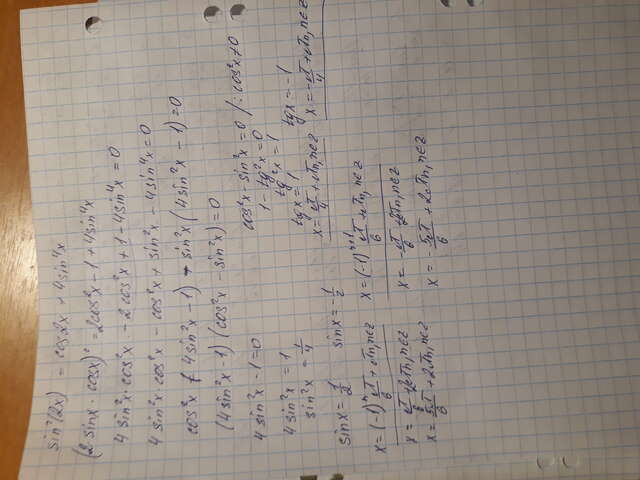 sin²(2x) = cos2x + 4sin⁴x
(2·sinx·cosx)² = 2cos²x - 1 + 4sin⁴x
4sin²x·cos²x - 2cos²x + 1 - 4sin⁴x = 0
4sin²x·cos²x - cos²x + sin²x - 4sin⁴x = 0
cos²x (4sin²x - 1) - sin²x (4sin²x - 1) = 0
(4sin²x - 1)(cos²x - sin²x) = 0
4sin²x - 1 = 0
4sin²x = 1
sin²x = 1/4
sinx = 1/2 sinx = -1/2
x = (-1)ⁿ π/6 + πn, n∈z x = (-1)ⁿ⁺¹ π/6 + πn, n∈z
x = π/6 + 2πn, n∈z x = -π/6 + 2πn, n∈z
x = 5π/6 + 2πn, n∈z x = -5π/6 + 2πn, n∈z
cos²x - sin²x = 0 /: cos²x ≠ 0
1 - tg²x = 0
tg²x = 1
tgx = 1 tgx = -1
x = π/4 + πn, n∈z x = -π/4 + πn, n∈z